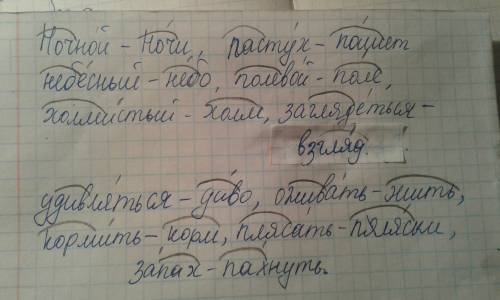 Ночной – Ночи, пастух – пасшет
небесный – небо, полевой – поле,
холмистый – холм, заглядеться –
взгляд.
удивляться – диво, оживать – жить,
кормить – корм, плясать – пляски,
запах – пахнуть.